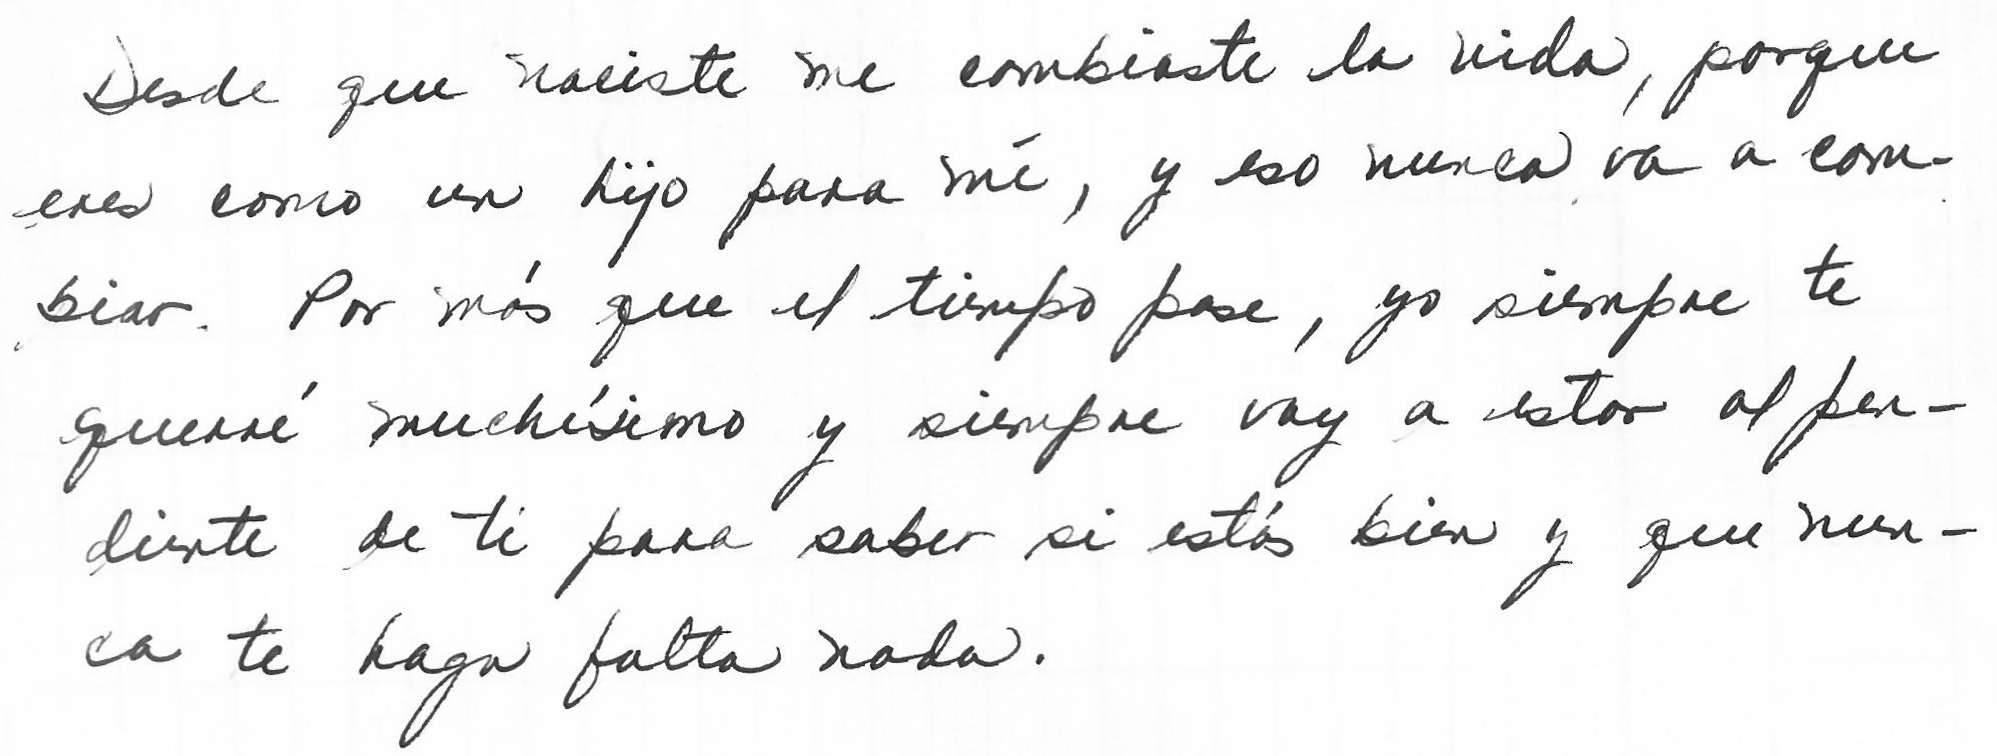 Desde que naciste me cambiaste la vida, porque
eres como un hijo para mí, y eso nunca va a cam-
biar. Por más que el tiempo pase, yo siempre te
querré muchísimo y siempre voy a estar al pen-
diente de ti para saber si estás bien y que nun-
ca te haga falta nada.